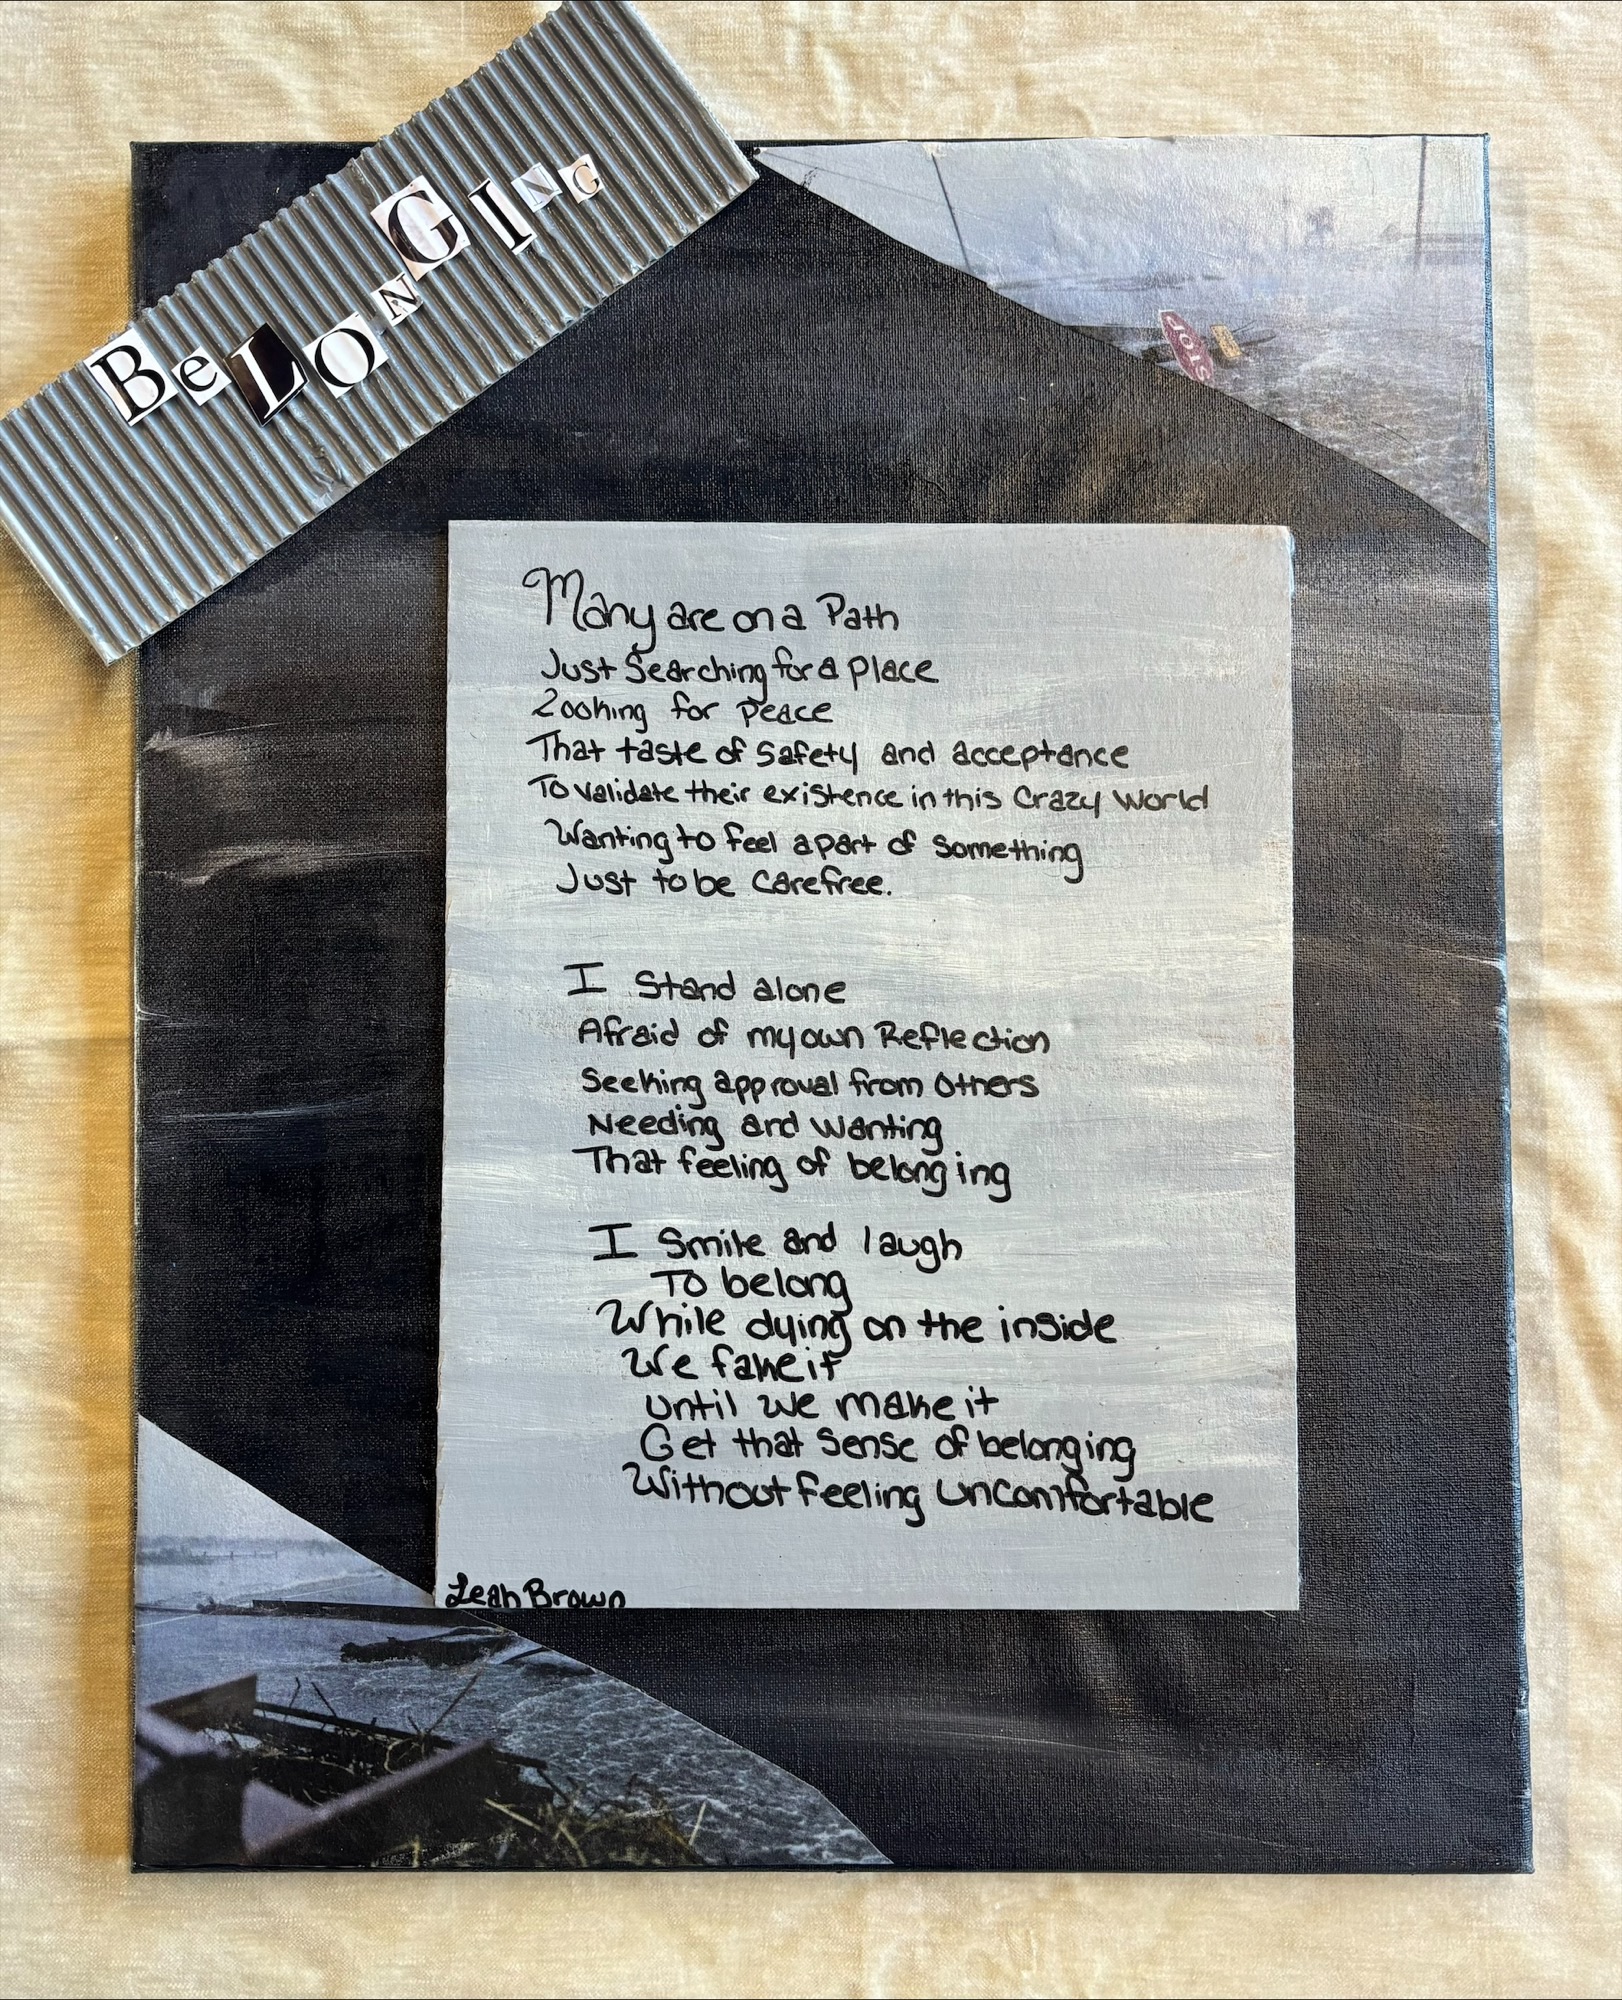 BeLONGING
STOP
Many are on a Path
Just Searching for a place
Looking for peace
That taste of safety and acceptance
To validate their existence in this Crazy World
Wanting to feel apart of something
Just to be carefree.
I stand alone
Afraid of my own Reflection
Seeking approval from others
Needing and wanting
That feeling of belonging
I smile and laugh
To belong
While dying on the inside
We fake it
until we make it
Get that sense of belonging
Without feeling uncomfortable
Leah Brown